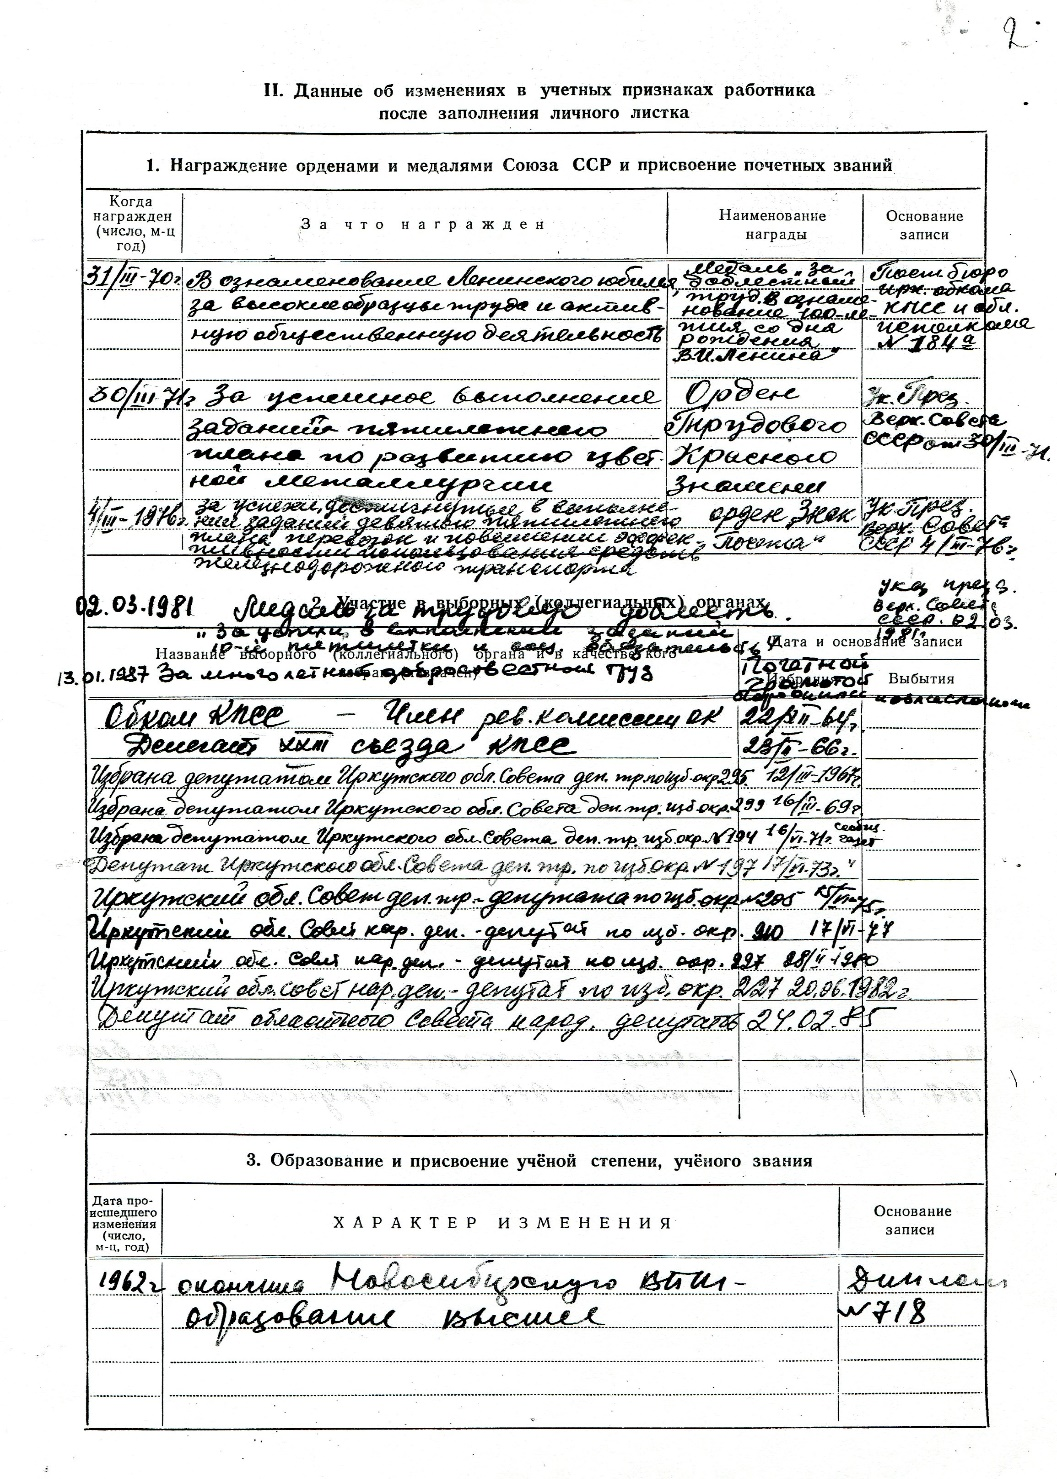 2
II. Данные об изменениях в учетных признаках работника
после заполнения личного листка
1. Награждение орденами и медалями Союза ССР и присвоение почетных званий
Когда
награжден
(число, м-ц
год)
За что награжден
Наименование
награды
Основание
записи
31/III-70г.
В ознаменование Ленинского юбилея,
за высокие образцы труда и актив-
ную общественную деятельность
Медаль „За
доблестный
труд. В ознаме-
нование 100-ле-
тия со дня
рождения
В.И.Ленина"
Пост. бюро
Ирк. обкома
КПСС и обл.
исполкома
№ 184а
30/III-71г.
За успешное выполнение
заданий пятилетнего
плана по развитию цвет-
ной металлургии
Орден
Трудового
Красного
Знамени
Ук. През.
Верх. Совета
СССР от 30/III-71.
4/III-1976г.
за успехи, достигнутые в выполне-
нии заданий девятого пятилетнего
плана перевозок и повышении эффек-
тивности использования средств
железнодорожного транспорта
орден „Знак
Почета"
Ук. През.
Верх. Совета
СССР 4/III-76г.
2. Участие в выборных (коллегиальных) органах
02.03.1981 Медаль за трудовую доблесть.
„За успехи в выполнении заданий
10-й пятилетки и соц. обязательств
указ през.
Верх. Совета
СССР. 02.03.
1981г.
Название выборного (коллегиального) органа и в качестве кого
Дата и основание записи
Выбытия
13.01.1987 За многолетний добросовестный труд
Почетной
Грамотой
Обком КПСС — Член рев. комиссии ОК
22/XII-64г.
Делегат XXIII съезда КПСС
23/II-66г.
Избрана депутатом Иркутского обл. Совета деп. тр. по изб. окр. 295 12/III-1967г.
Избрана депутатом Иркутского обл. Совета деп. тр. изб. окр. 299 16/III-69г.
Избрана депутатом Иркутского обл. Совета деп. тр. изб. окр. № 194 16/VI-71г. Сообщ. газет
Депутат Иркутского обл. Совета деп. тр. по изб. окр № 197 17/VI-73г. "
Иркутский обл. Совет деп. тр. - депутата по изб. окр № 205 15/VI-75г.
Иркутский обл. Совет нар. деп. - депутат по изб. окр. 210 17/VI-77
Иркутский обл. Совет нар. деп. - депутат по изб. окр. 227 28/II-1980
Иркутский обл. совет нар. деп. - депутат по изб. окр. 227 20.06.1982г.
Депутат областного Совета народ. депутатов 24.02.85
3. Образование и присвоение учёной степени, учёного звания
Дата про-
исшедшего
изменения
(число,
м-ц, год)
ХАРАКТЕР ИЗМЕНЕНИЯ
Основание
записи
1962г
окончила Новосибирскую ВПШ -
образование высшее
Диплом
№ 718